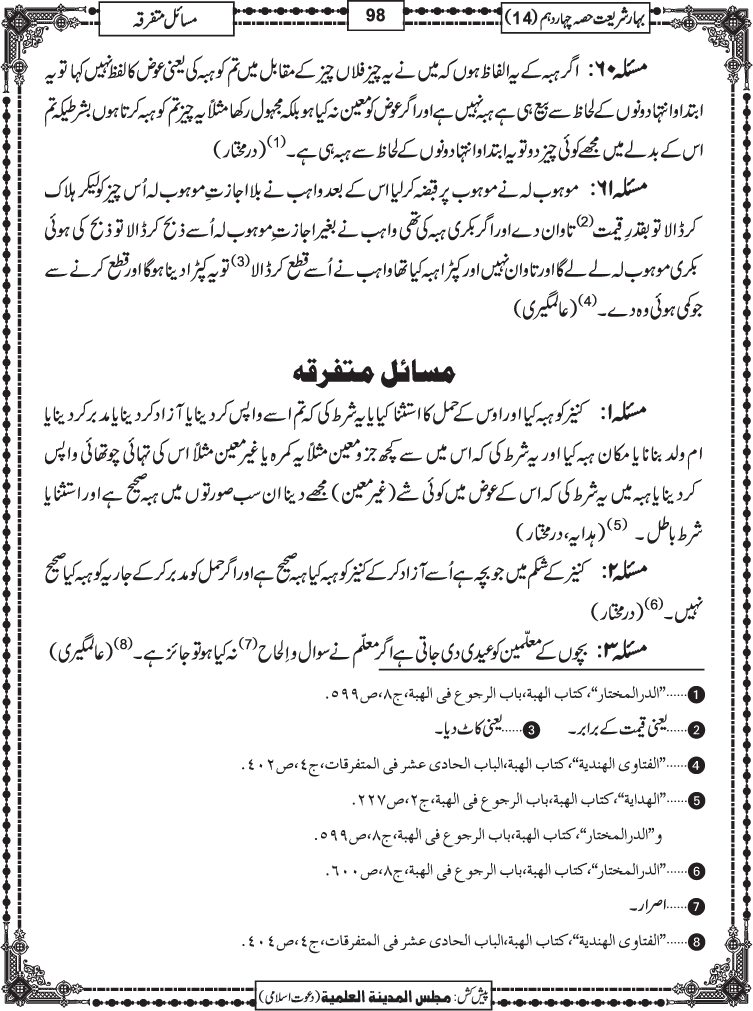 بہارِ شریعت حصہ چہاردہم (14)
98
مسائل متفرقہ
مسئلہ ۶۰: اگر ہبہ کے یہ الفاظ ہوں کہ میں نے یہ چیز فلاں چیز کے مقابل میں تم کو ہبہ کی یعنی عوض کا لفظ نہیں کہا تو یہ
ابتدا وانتہا دونوں کے لحاظ سے بیع ہی ہے ہبہ نہیں ہے اور اگر عوض کو معین نہ کیا ہو بلکہ مجہول رکھا مثلاً یہ چیز تم کو ہبہ کرتا ہوں بشرطیکہ تم
اس کے بدلے میں مجھے کوئی چیز دو تو یہ ابتدا وانتہا دونوں کے لحاظ سے ہبہ ہی ہے۔(1) (درمختار)
مسئلہ ۶۱: موہوب لہ نے موہوب پر قبضہ کرلیا اس کے بعد واہب نے بلا اجازتِ موہوب لہ اُس چیز کو لیکر ہلاک
کر ڈالا تو بقدرِ قیمت(2) تاوان دے اور اگر بکری ہبہ کی تھی واہب نے بغیر اجازتِ موہوب لہ اُسے ذبح کر ڈالا تو ذبح کی ہوئی
بکری موہوب لہ لے لے گا اور تاوان نہیں اور کپڑا ہبہ کیا تھا واہب نے اُسے قطع کر ڈالا(3) تو یہ کپڑا دینا ہوگا اور قطع کرنے سے
جو کمی ہوئی وہ دے۔(4) (عالمگیری)
مسائل متفرقہ
مسئلہ ۱: کنیز کو ہبہ کیا اور اوس کے حمل کا استثنا کیا یا یہ شرط کی کہ تم اسے واپس کردینا یا آزاد کردینا یا مدبر کردینا یا
ام ولد بنانا یا مکان ہبہ کیا اور یہ شرط کی کہ اس میں سے کچھ جزو معین مثلاً یہ کمرہ یا غیر معین مثلاً اس کی تہائی چوتھائی واپس
کردینا یا ہبہ میں یہ شرط کی کہ اس کے عوض میں کوئی شے (غیر معین) مجھے دینا ان سب صورتوں میں ہبہ صحیح ہے اور استثنا یا
شرط باطل۔(5) (ہدایہ، درمختار)
مسئلہ ۲: کنیز کے شکم میں جو بچہ ہے اُسے آزاد کرکے کنیز کو ہبہ کیا ہبہ صحیح ہے اور اگر حمل کو مدبر کرکے جاریہ کو ہبہ کیا صحیح
نہیں۔(6) (درمختار)
مسئلہ ۳: بچوں کے معلّمین کو عیدی دی جاتی ہے اگر معلّم نے سوال و اِلحاح(7) نہ کیا ہو تو جائز ہے۔(8) (عالمگیری)
1......"الدرالمختار"، کتاب الهبة، باب الرجوع فی الهبة، ج٨، ص٥٩٩.
2......یعنی قیمت کے برابر۔ 3......یعنی کاٹ دیا۔
4......"الفتاوی الهندیة"، کتاب الهبة، الباب الحادی عشر فی المتفرقات، ج٤، ص٤٠٢.
5......"الهدایة"، کتاب الهبة، باب الرجوع فی الهبة، ج٢، ص٢٢٧.
و"الدرالمختار"، کتاب الهبة، باب الرجوع فی الهبة، ج٨، ص٥٩٩.
6......"الدرالمختار"، کتاب الهبة، باب الرجوع فی الهبة، ج٨، ص٦٠٠.
7......اصرار۔
8......"الفتاوی الهندیة"، کتاب الهبة، الباب الحادی عشر فی المتفرقات، ج٤، ص٤٠٤.
پیش کش: مجلس المدینة العلمیة (دعوت اسلامی)